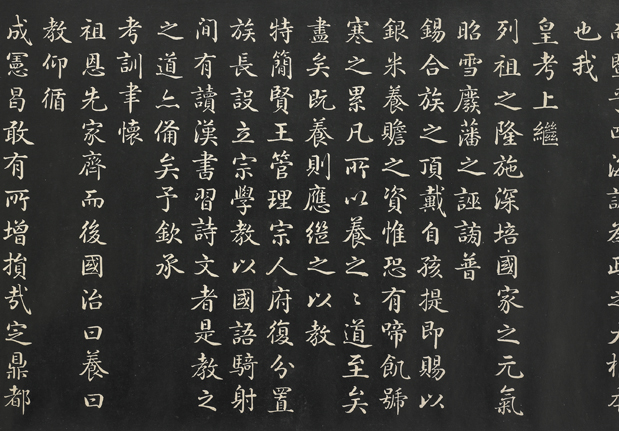 也我
皇考上繼
列祖之隆施深培國家之元氣
昭雪廢藩之誣謗普
錫合族之頂戴自孩提即賜以
銀米養贍之資惟恐有啼飢號
寒之累凡所以養之〻道至矣
盡矣既養則應継之以教
特簡賢王管理宗人府復分置
族長設立宗學教以國語騎射
間有讀漢書習詩文者是教之
之道亦備矣予欽承
考訓聿懷
祖恩先家齊而後國治曰養曰
教仰循
成憲曷敢有所增損哉定鼎都